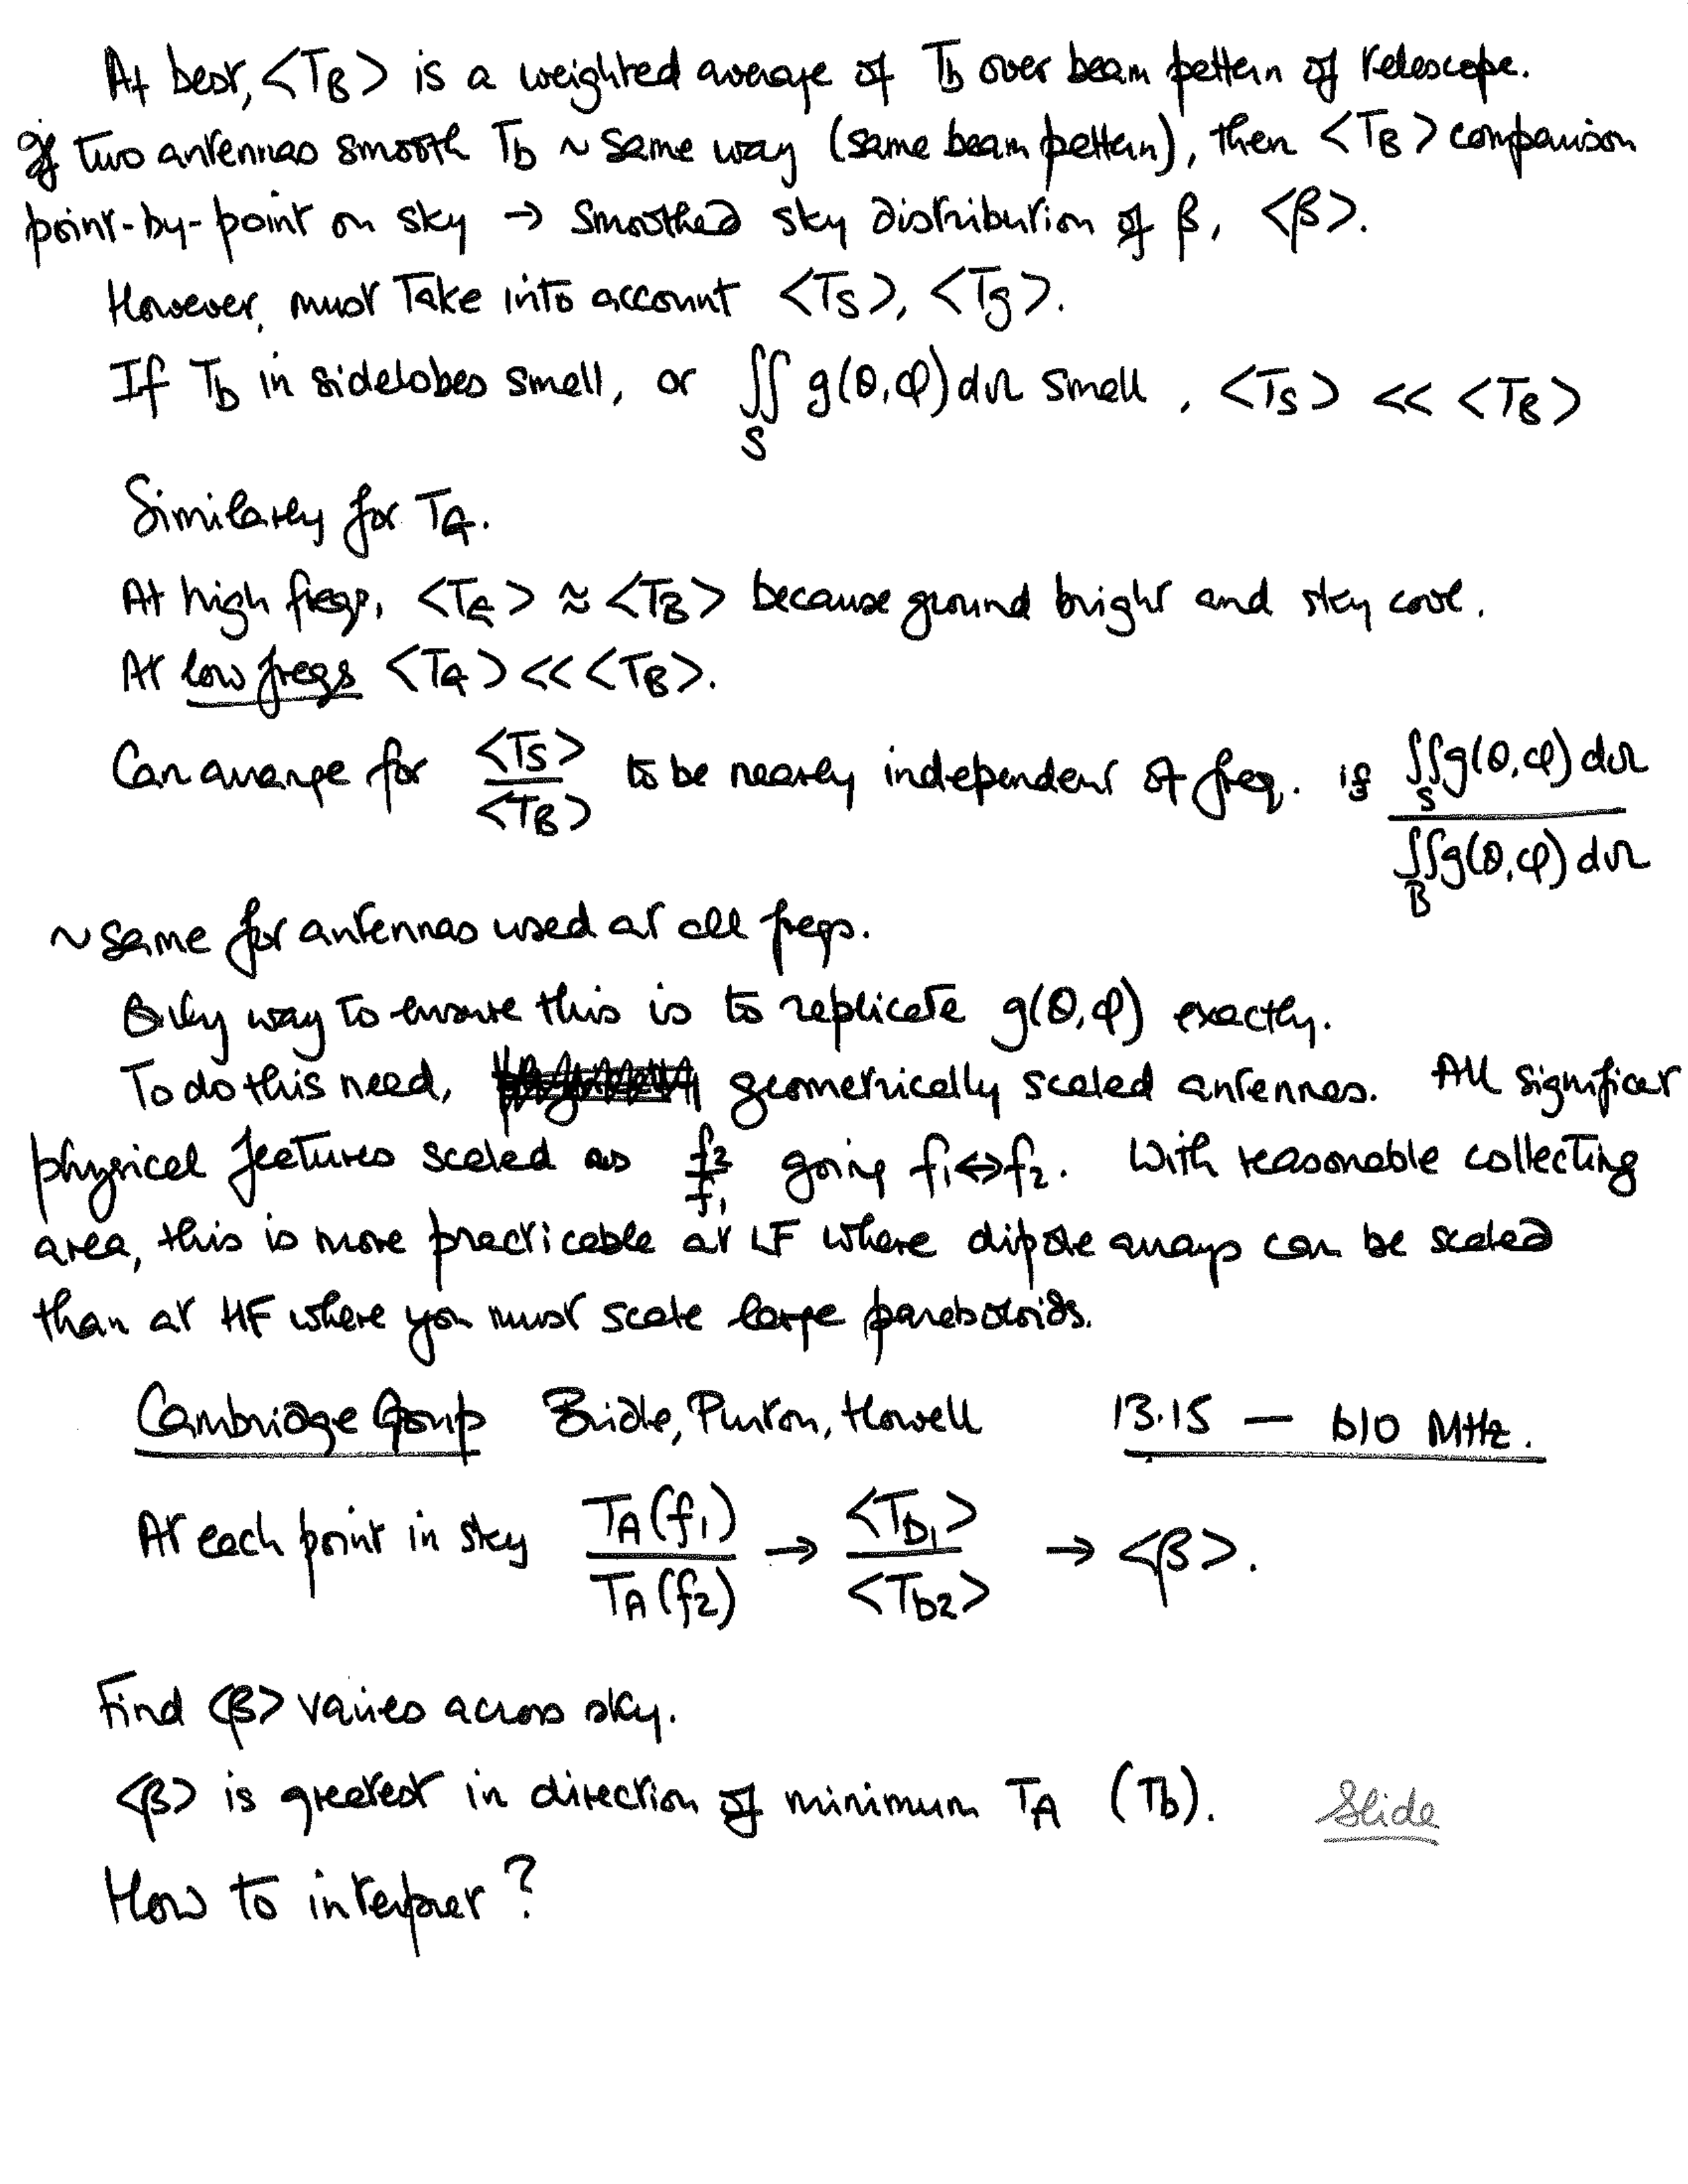 At best, <T_B> is a weighted average of T_b over beam pattern of telescope.
If two antennas smooth T_b ~ same way (same beam pattern), then <T_B> comparison
point-by-point on sky → smoothed sky distribution of β, <β>.
However, must take into account <T_S>, <T_g>.
If T_b in sidelobes small, or ∬_S g(θ,φ) dΩ small, <T_S> << <T_B>
Similarly for T_G.
At high freqs, <T_G> ≈ <T_B> because ground bright and sky cool.
At low freqs <T_G> << <T_B>.
Can arrange for <T_S>/<T_B> to be nearly independent of freq. if ∬_S g(θ,φ) dΩ / ∬_B g(θ,φ) dΩ
~ same for antennas used at all freqs.
Only way to ensure this is to replicate g(θ,φ) exactly.
To do this need, geometrically scaled antennas. All significant
physical features scaled as f_2/f_1 going f_1 ⇔ f_2. With reasonable collecting
area, this is more practicable at LF where dipole arrays can be scaled
than at HF where you must scale large paraboloids.
Cambridge Group Bridle, Purton, Howell 13.15 — 610 MHz.
At each point in sky T_A(f_1)/T_A(f_2) → <T_b1>/<T_b2> → <β>.
Find <β> varies across sky.
<β> is greatest in direction of minimum T_A (T_b). Slide
How to interpret?